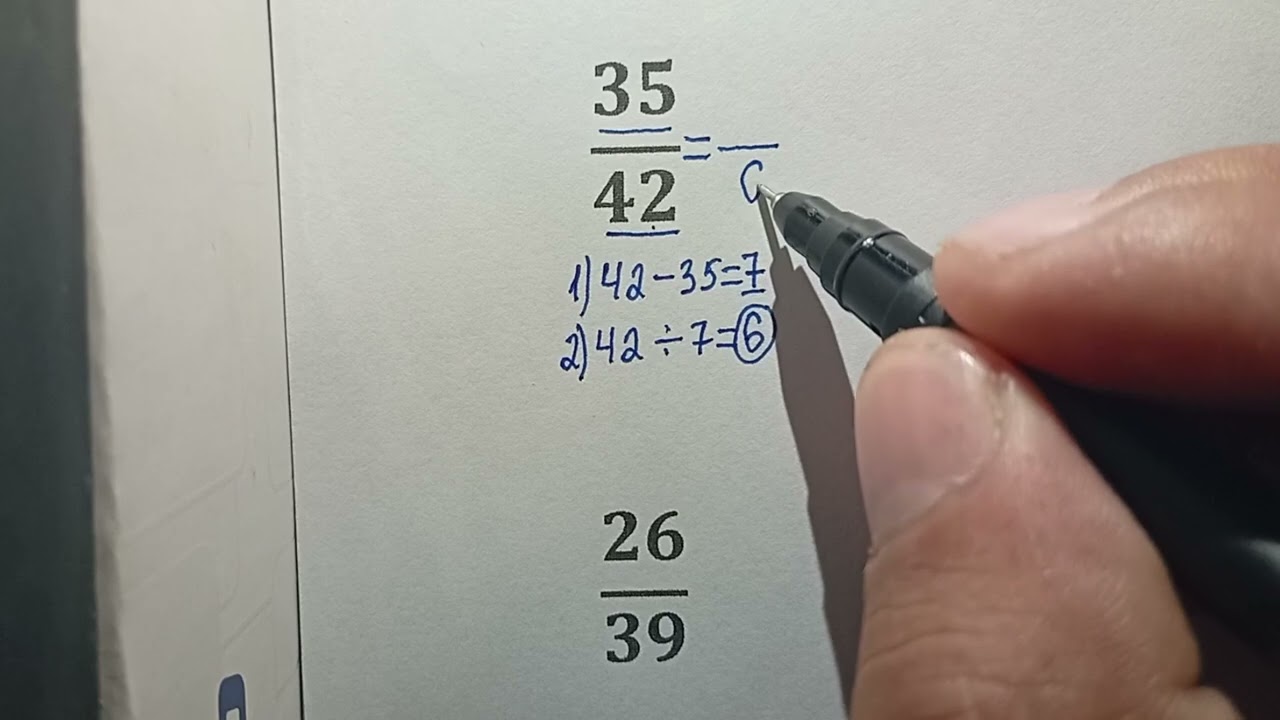 35
42
=
1) 42 - 35 = 7
2) 42 ÷ 7 = 6
26
39